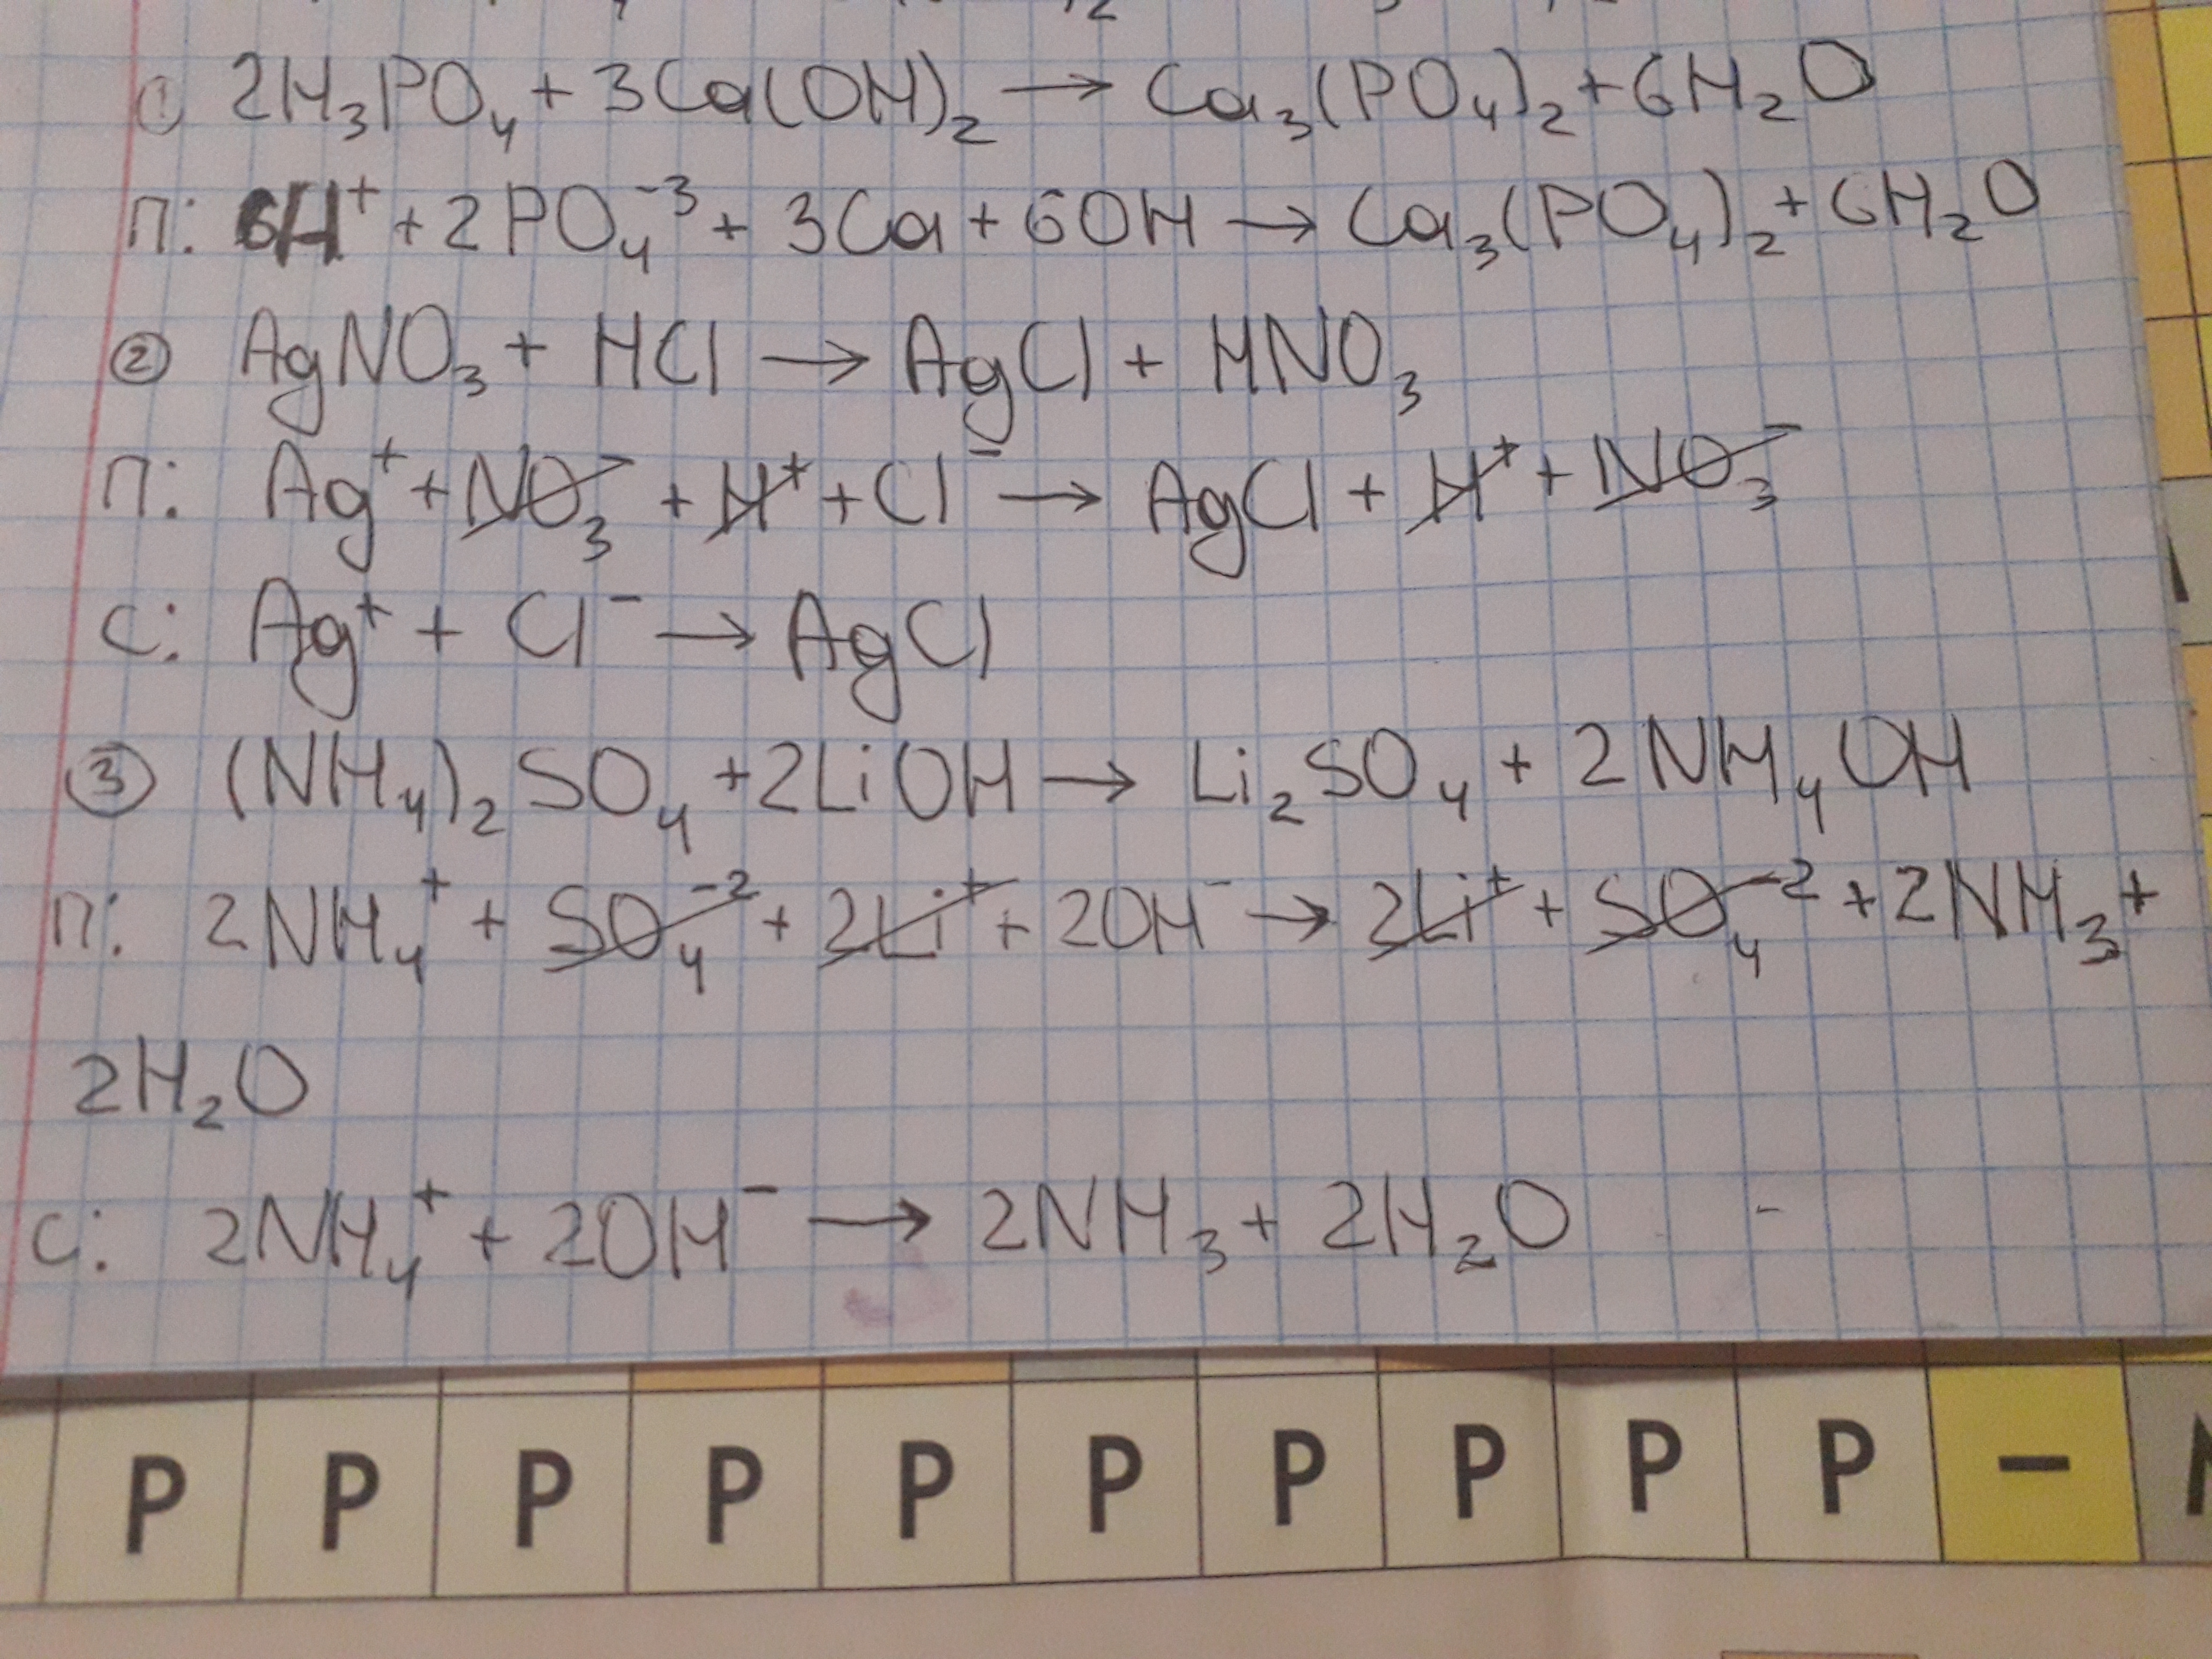 ① 2H₃PO₄ + 3Ca(OH)₂ → Ca₃(PO₄)₂ + 6H₂O
П: 6H⁺ + 2PO₄⁻³ + 3Ca + 6OH → Ca₃(PO₄)₂ + 6H₂O
② AgNO₃ + HCl → AgCl + HNO₃
П: Ag⁺ + NO₃⁻ + H⁺ + Cl⁻ → AgCl + H⁺ + NO₃⁻
С: Ag⁺ + Cl⁻ → AgCl
③ (NH₄)₂SO₄ + 2LiOH → Li₂SO₄ + 2NH₄OH
П: 2NH₄⁺ + SO₄⁻² + 2Li⁺ + 2OH⁻ → 2Li⁺ + SO₄⁻² + 2NH₃ +
2H₂O
С: 2NH₄⁺ + 2OH⁻ → 2NH₃ + 2H₂O
Р Р Р Р Р Р Р Р Р Р –